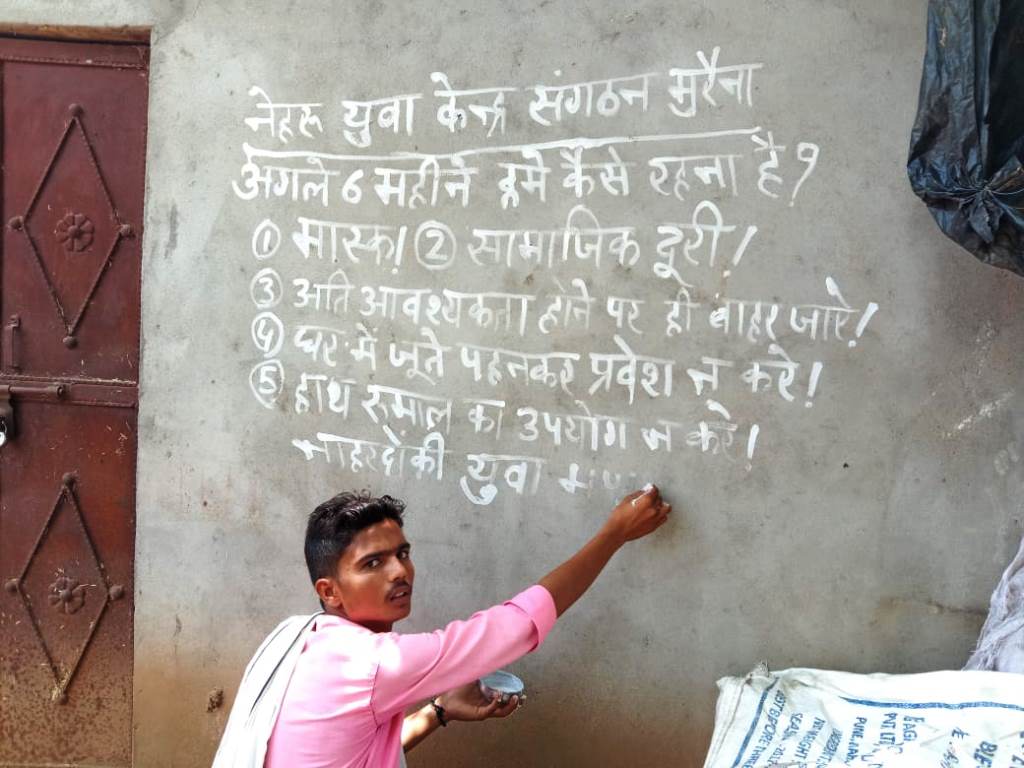 नेहरू युवा केन्द्र संगठन मुरैना
अगले 6 महीने हमे कैसे रहना है?
① मास्क! ② सामाजिक दूरी!
③ अति आवश्यकता होने पर ही बाहर जारे!
④ घर में जूते पहनकर प्रवेश न करे!
⑤ हाथ रुमाल का उपयोग न करे!
युवा
BAG
PVT LTD
PUNE